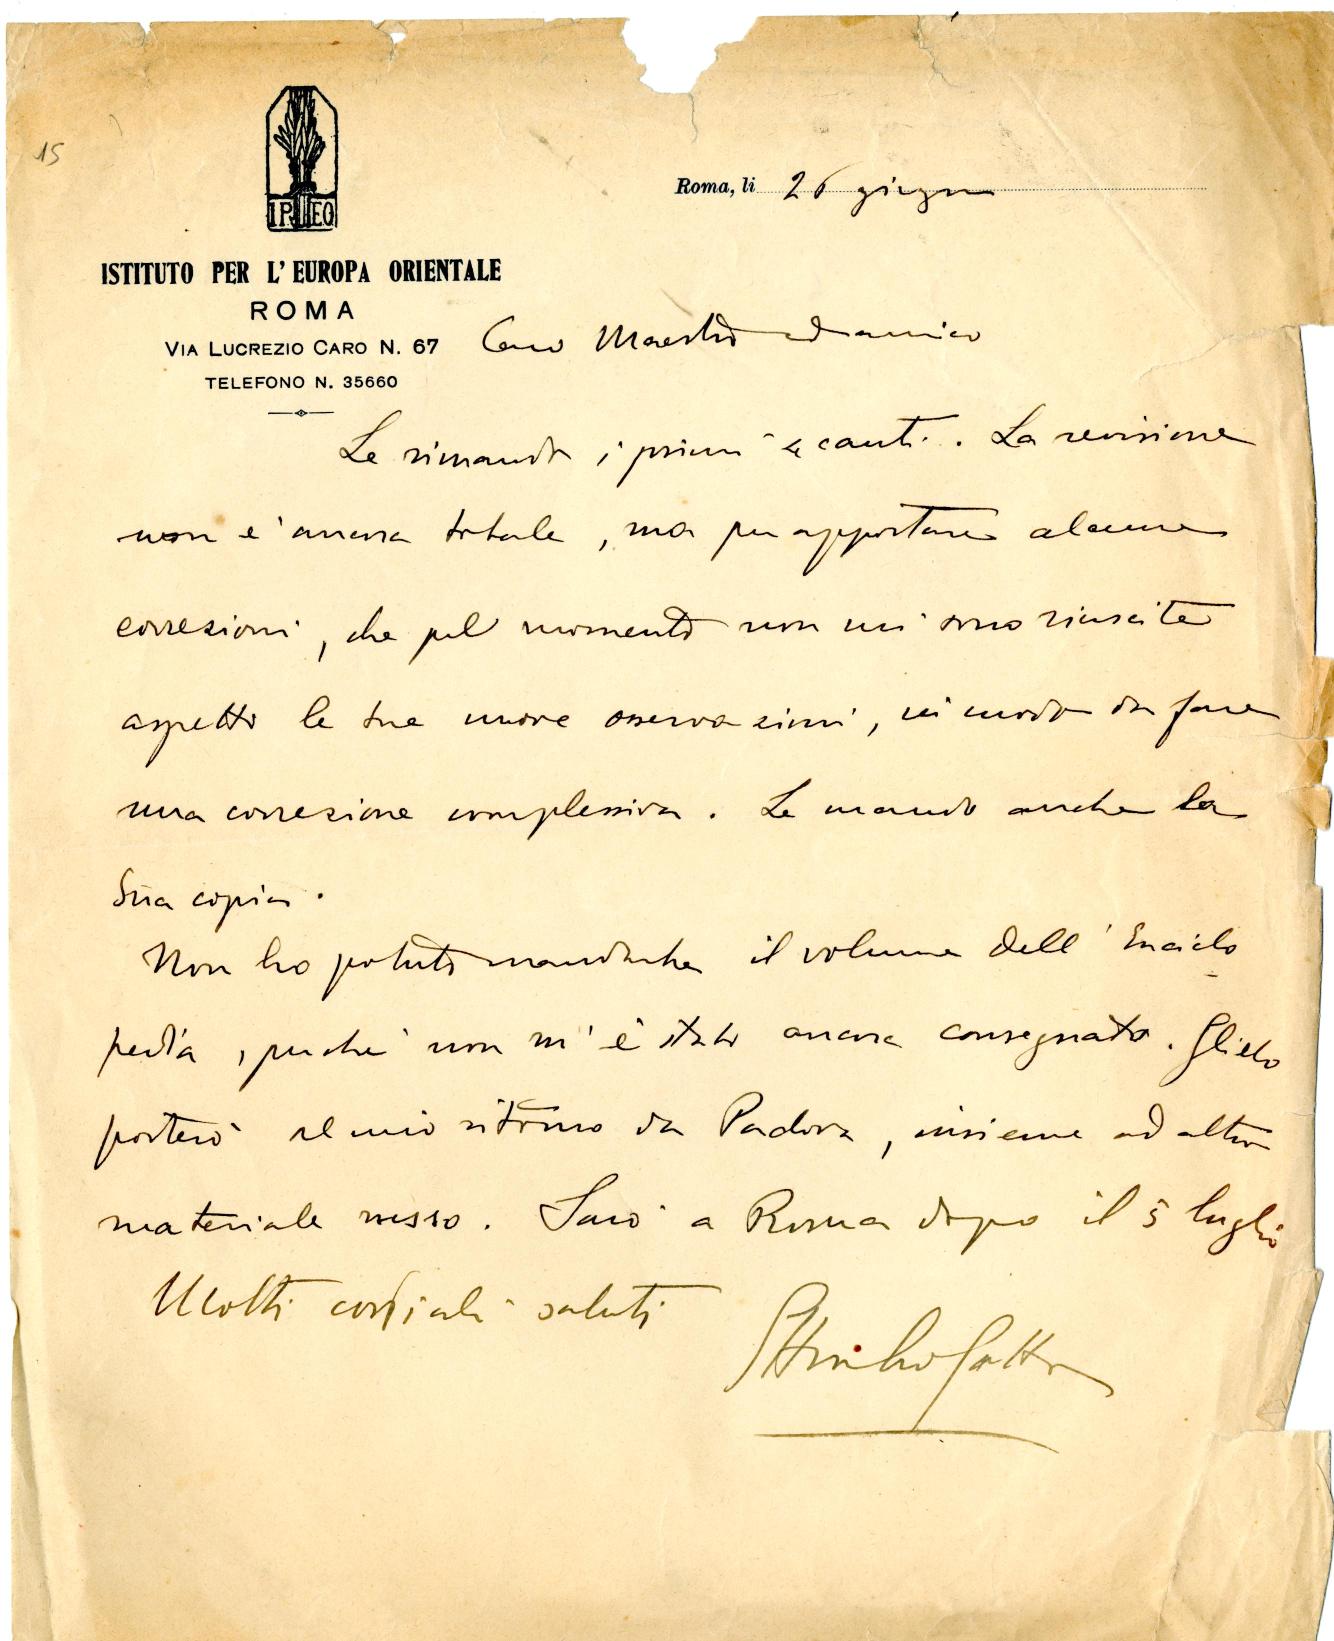 15
IPEO
Roma, lì 26 giugno
ISTITUTO PER L' EUROPA ORIENTALE
ROMA
VIA LUCREZIO CARO N. 67
TELEFONO N. 35660
Caro Maestro ed amico
Le rimando i primi 4 canti. La revisione
non e' ancora totale, ma per apportare alcune
correzioni, che pel momento non mi sono riuscite
aspetto le sue nuove osservazioni, in modo da fare
una correzione complessiva. Le mando anche la
Sua copia.
Non ho potuto mandarle il volume dell' Enciclo
pedia, perchè non m' è stato ancora consegnato. Glielo
porterò al mio ritorno da Padova, insieme ad altro
materiale russo. Sarò a Roma dopo il 5 luglio
Molti cordiali saluti
Ettore Lo Gatto